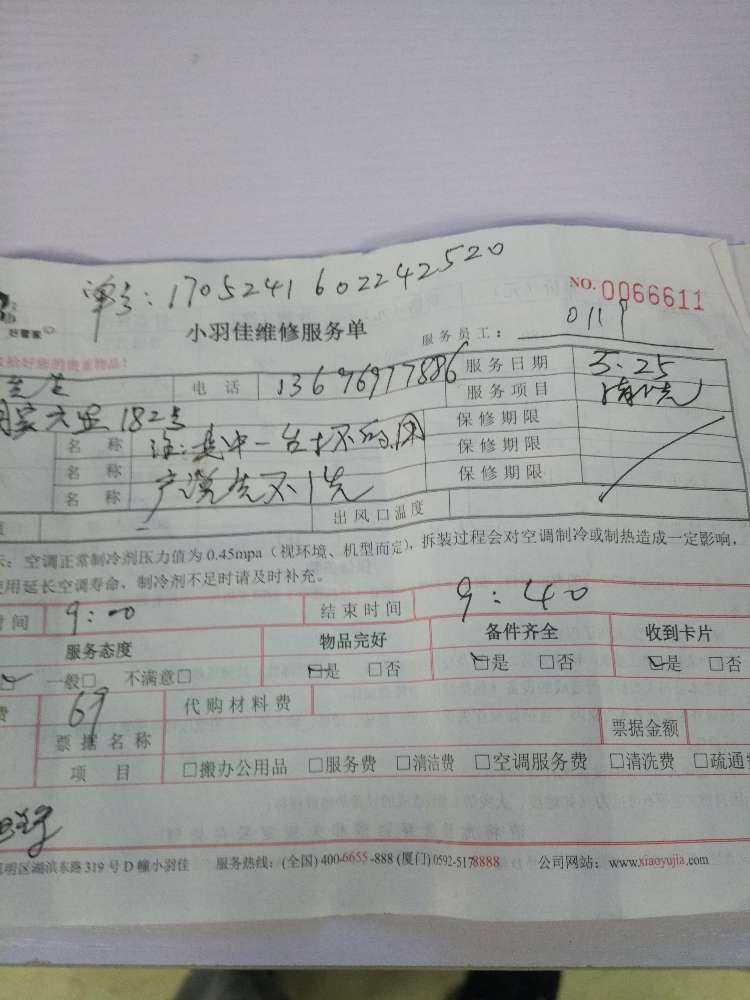 单号：1705241602242520
好慧家
NO. 0066611
小羽佳维修服务单
服务员工： 0119
电 话 13676977886 服务日期 5.25
1825 服务项目 清洗
名 称 注：其中一台 保修期限
名 称 保修期限
名 称 户说先不洗 保修期限
出风口温度
空调正常制冷剂压力值为0.45mpa（视环境、机型而定），拆装过程会对空调制冷或制热造成一定影响，
使用延长空调寿命，制冷剂不足时请及时补充。
时间 9：00 结束时间 9：40
服务态度 物品完好 备件齐全 收到卡片
一般□ 不满意□ □是 □否 □是 □否 □是 □否
费 69 代购材料费
票据名称 票据金额
项 目 □搬办公用品 □服务费 □清洁费 □空调服务费 □清洗费 □疏通费
明区湖滨东路319号D幢小羽佳 服务热线：(全国) 400-6655-888 (厦门) 0592-5178888 公司网站：www.xiaoyujia.com